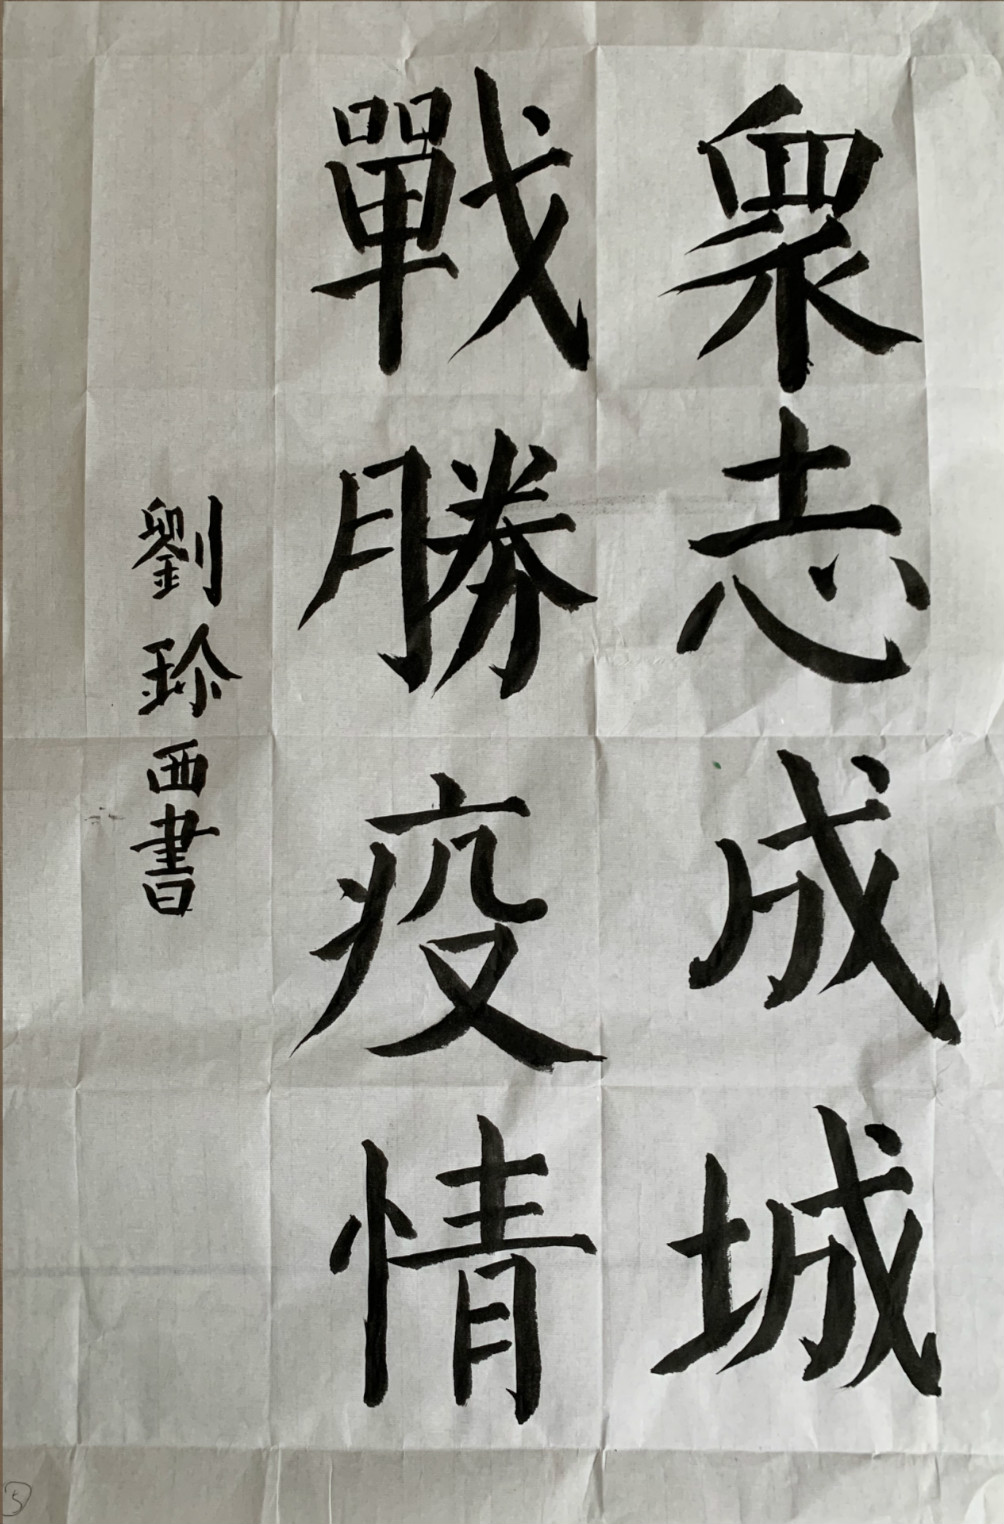 眾志成城
戰勝疫情
劉珍西書
5